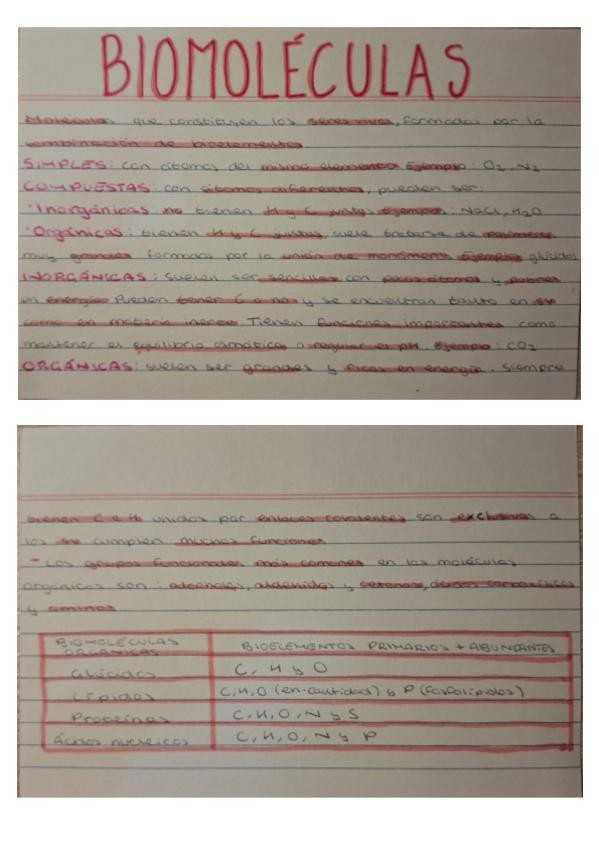 BIOMOLÉCULAS
Moléculas que constituyen los seres vivos, formadas por la
combinación de bioelementos
SIMPLES: con átomos del mismo elemento Ejemplo: O₂, N₂
COMPUESTAS: con átomos diferentes, pueden ser:
·Inorgánicas no tienen H y C juntos ejemplo: NaCl, H₂O
·Orgánicas: tienen H y C juntos, suele tratarse de polímeros
muy grandes formados por la unión de monómeros Ejemplo glúcidos
INORGÁNICAS: suelen ser sencillas, con pocos átomos y pobres
en energía. Pueden tener C o no y se encuentran tanto en sv
como en materia inerte. Tienen funciones importantes como
mantener el equilibrio osmótico o regular el pH. Ejemplo: CO₂
ORGÁNICAS: suelen ser grandes y ricas en energía. Siempre
tienen C e H unidos por enlaces covalentes son exclusivas a
los sv cumplen muchas funciones
- Los grupos funcionales más comunes en las moléculas
orgánicas son: alcoholes, aldehídos y cetonas, ácidos carboxílicos
y aminas
BIOMOLÉCULAS ORGÁNICAS BIOELEMENTOS PRIMARIOS + ABUNDANTES
Glúcidos C, H y O
Lípidos C, H, O (en cantidad) y P (fosfolípidos)
Proteínas C, H, O, N y S
Ácidos nucleicos C, H, O, N y P